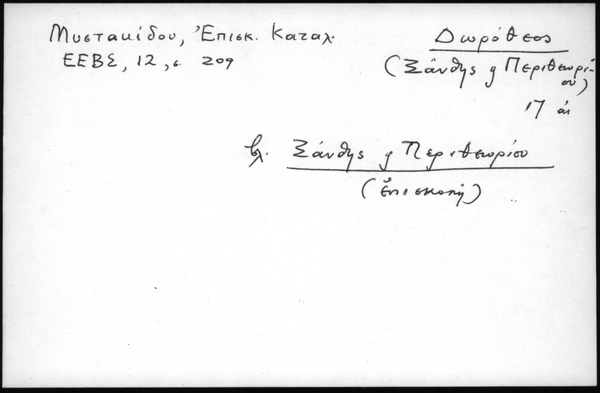 Μυστακίδου, Ἐπισκ. Καταλ.
ΕΕΒΣ, 12, σ. 209
Δωρόθεος
(Ξάνθης ἤ Περιθεωρίου)
17 αἰ
βλ. Ξάνθης ἤ Περιθεωρίου
(ἐπισκοπή)